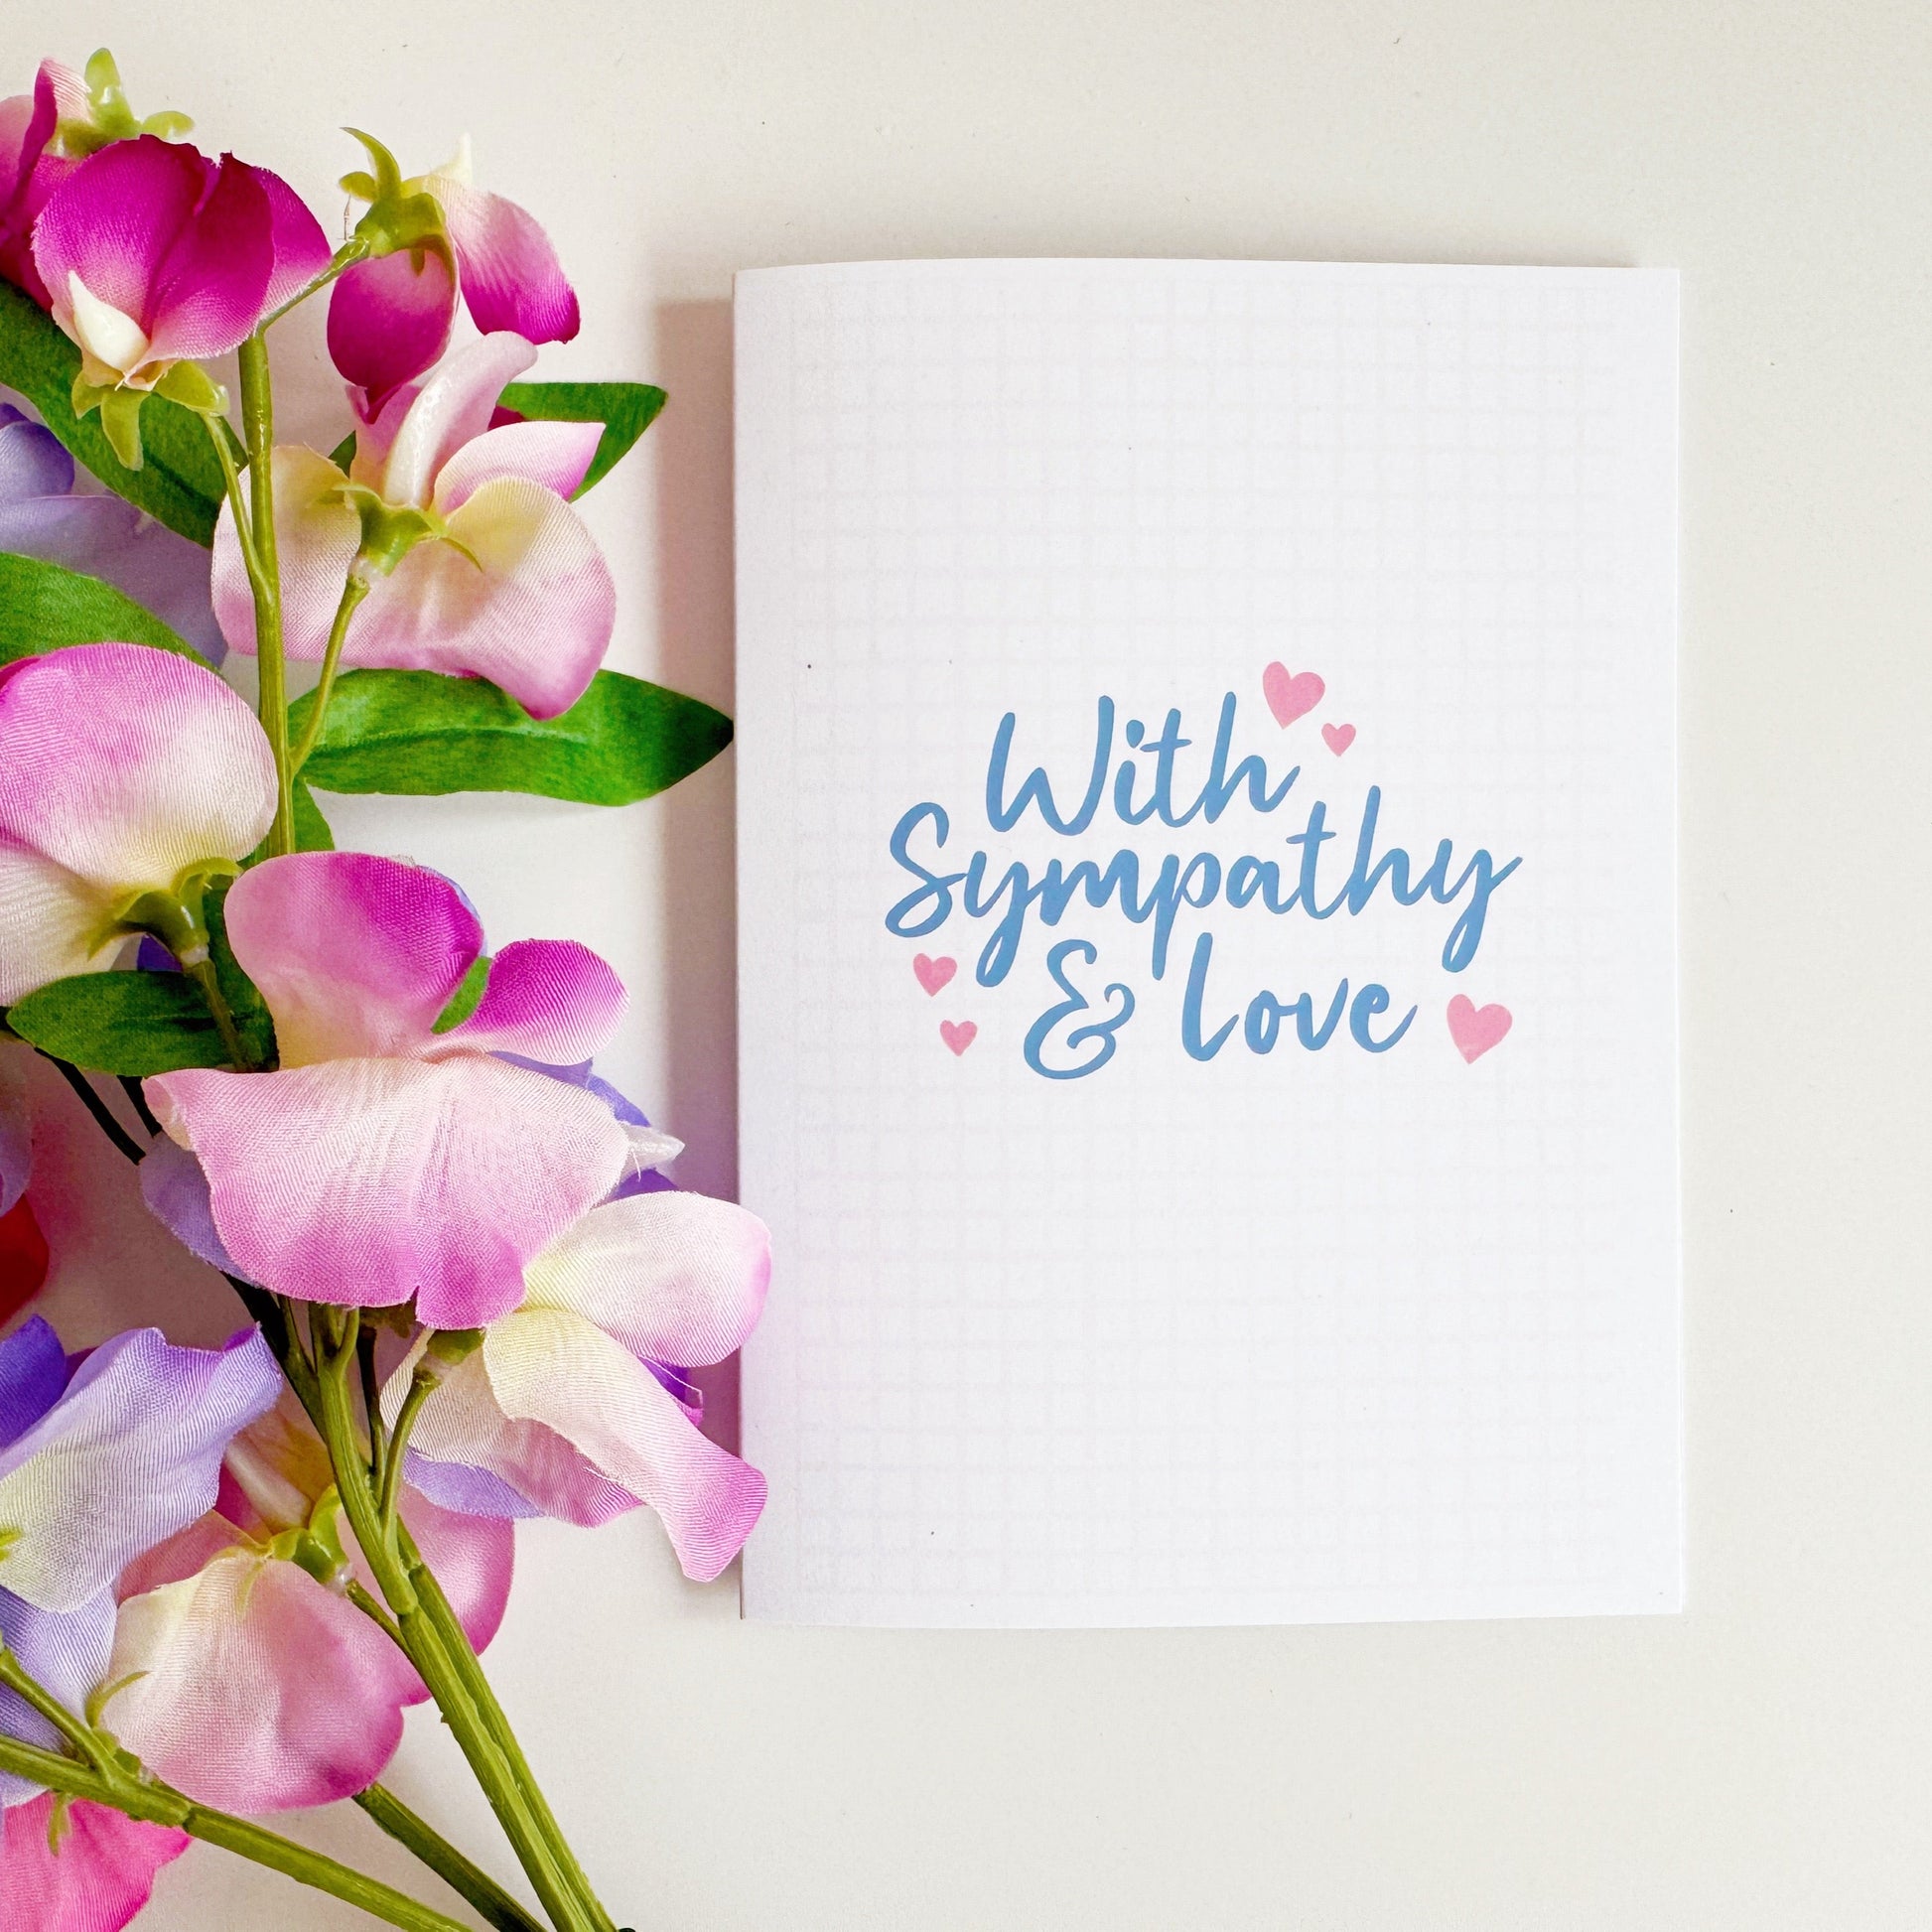 With
Sympathy
& Love